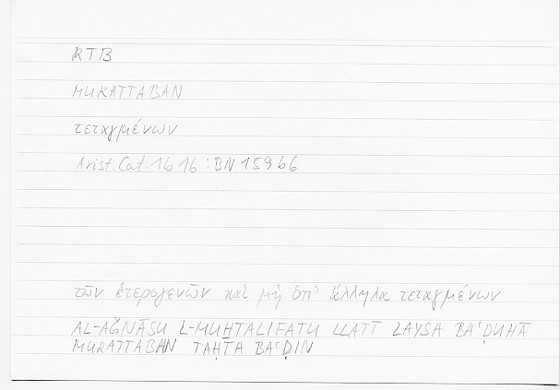 RTB
MURATTABAN
τεταγμένων
Arist. Cat. 1b16 : BN 159b6
τῶν ἑτερογενῶν καὶ μὴ ὑπ' ἄλληλα τεταγμένων
AL-AǦNĀSU L-MUḪTALIFATU LLATĪ LAYSA BAʿḌUHĀ
MURATTABAN TAḤTA BAʿḌIN